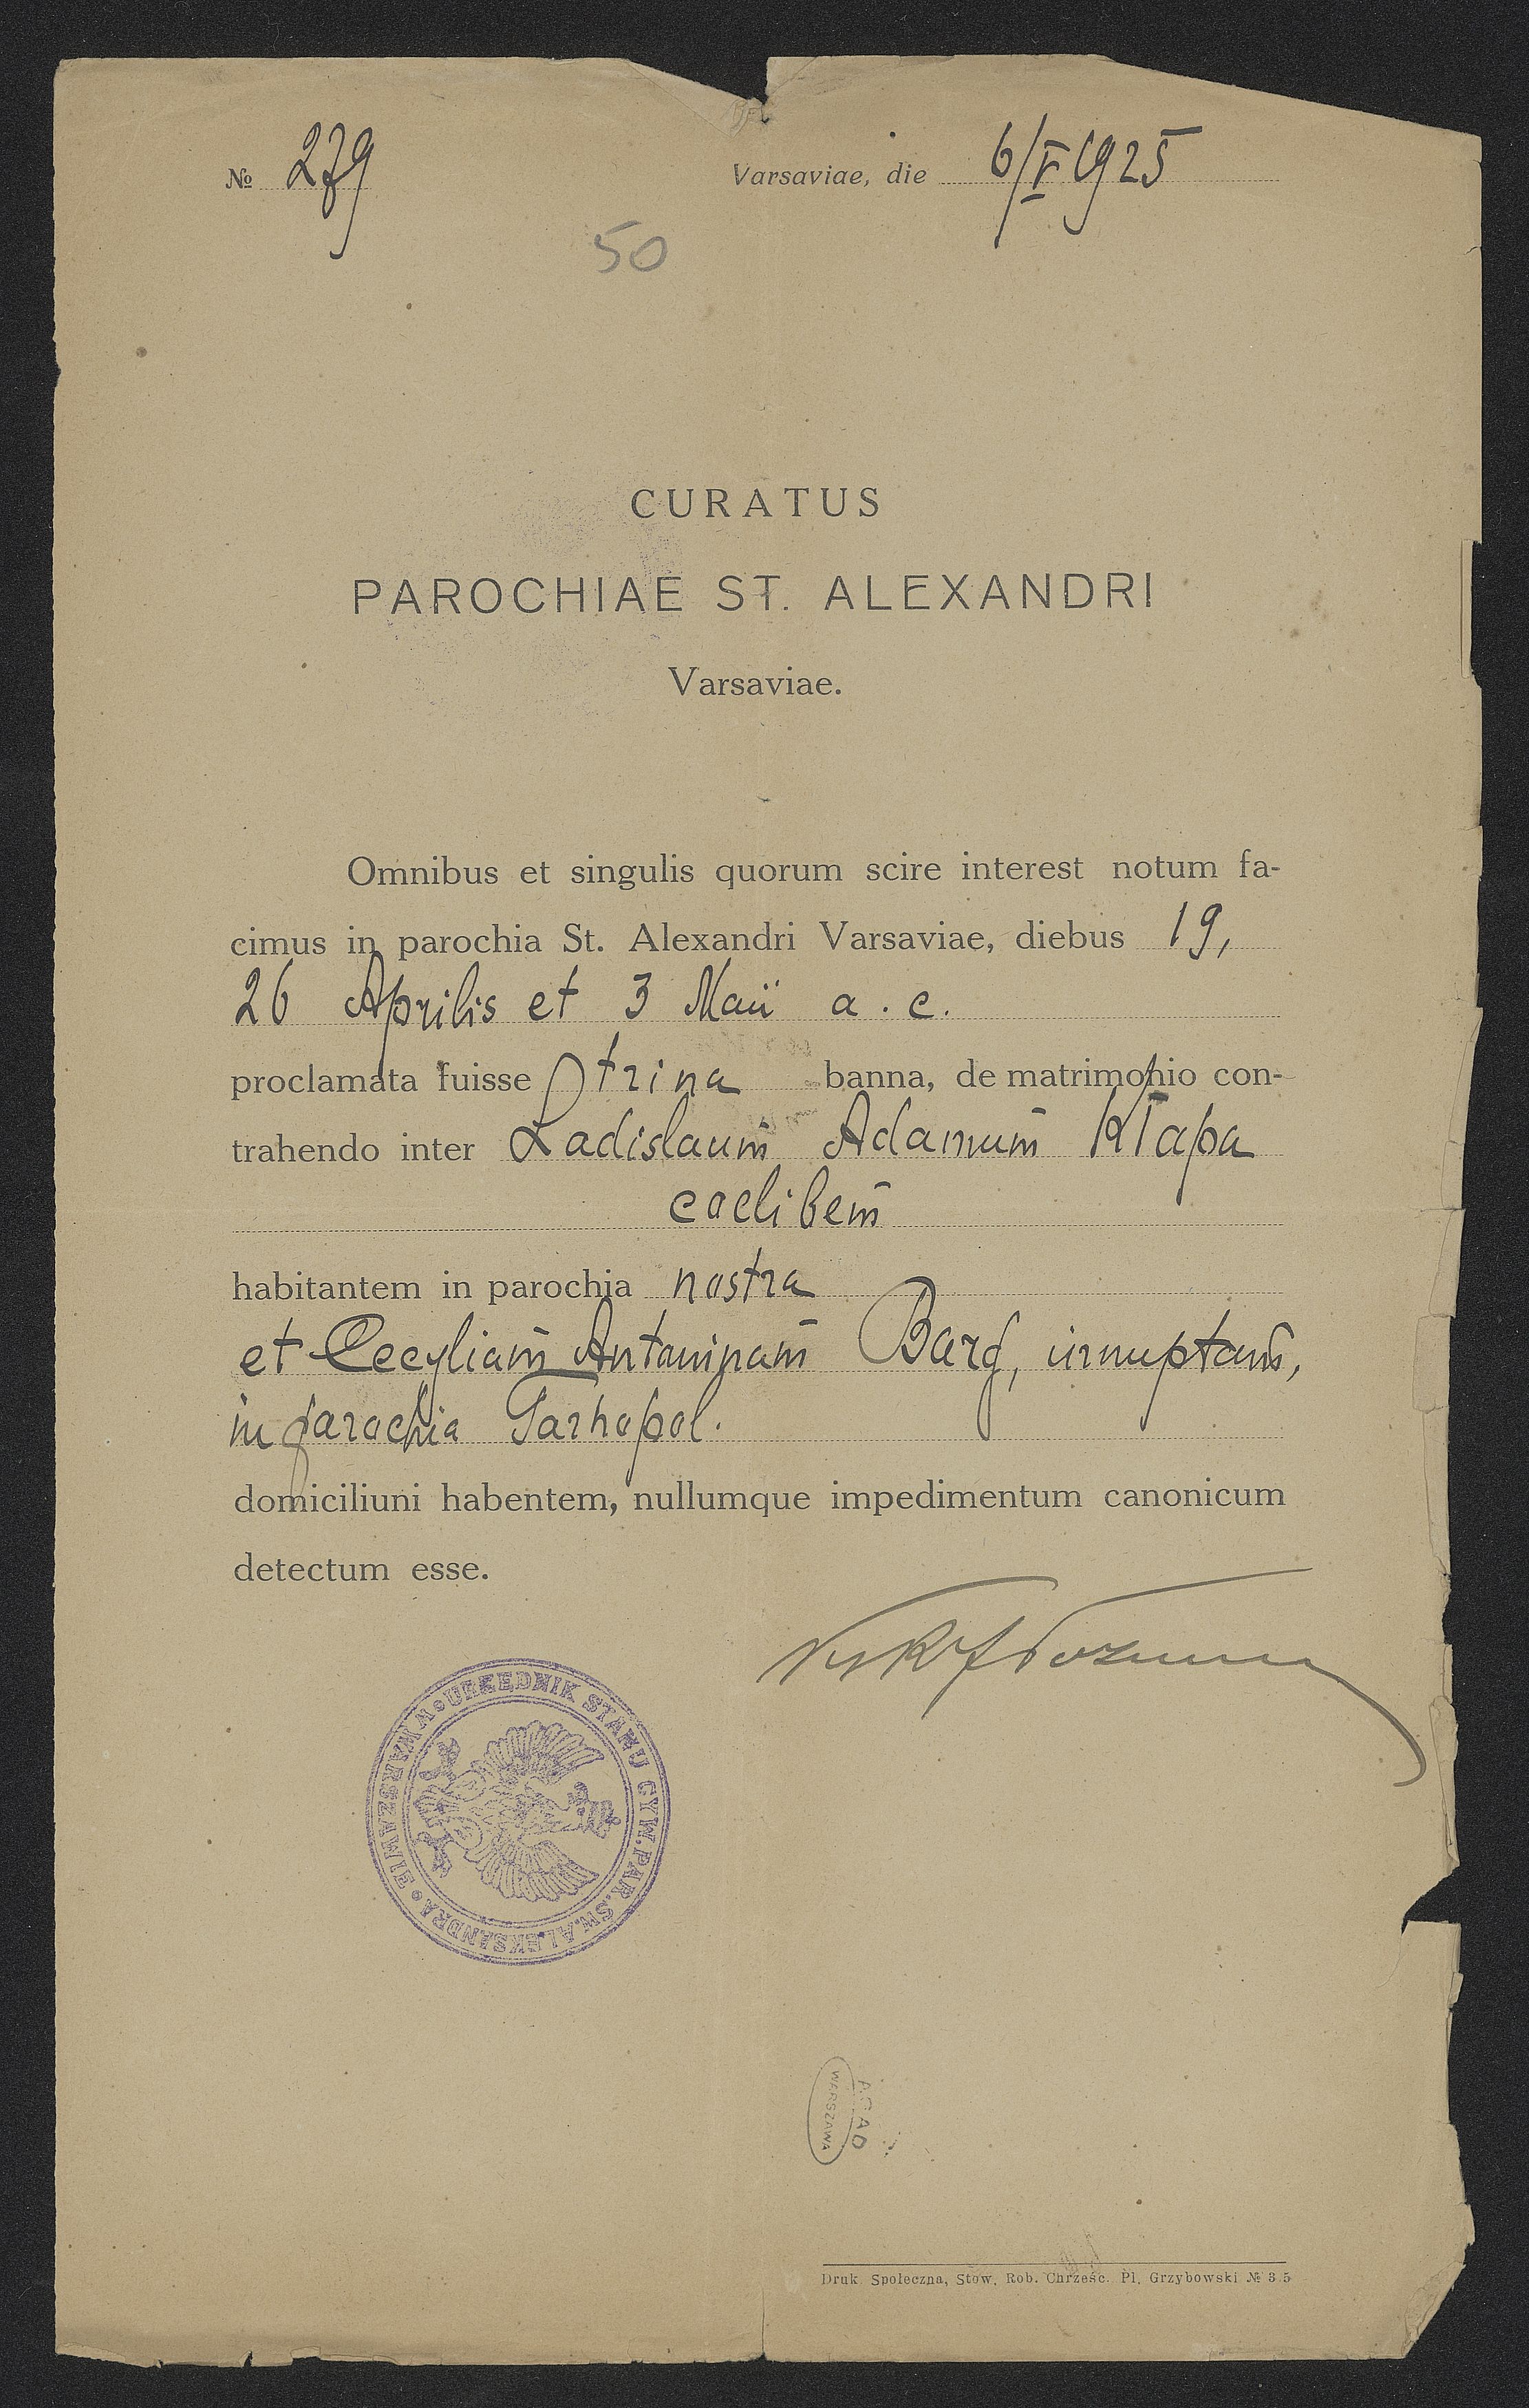 № 279 Varsaviae, die 6/V 1925
50
CURATUS
PAROCHIAE ST. ALEXANDRI
Varsaviae.
Omnibus et singulis quorum scire interest notum fa-
cimus in parochia St. Alexandri Varsaviae, diebus 19,
26 Aprilis et 3 Maii a. c.
proclamata fuisse trina banna, de matrimonio con-
trahendo inter Ladislaum Adamum Kłapa
caelibem
habitantem in parochia nostra
et Cecyliam Antoninam Barg, innuptam,
in parochia Tarnopol.
domiciliuni habentem, nullumque impedimentum canonicum
detectum esse.
URZĘDNIK STANU CYW. PAR. ŚW. ALEKSANDRA • W WARSZAWIE •
AGAD
WARSZAWA
Druk. Społeczna, Stow. Rob. Chrześc. Pl. Grzybowski № 3 5